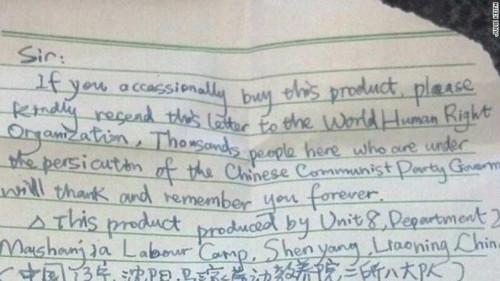 Sir:
If you accassionally buy this product, please
kindly resend this letter to the World Human Right
Organization, Thousands people here who are under
the persicution of the Chinese Communist Party Govern
will thank and remember you forever.
△ This product produced by Unit 8, Department 2
Mashanjia Labour Camp, Shen yang, Liaoning, Chin
(中国 辽宁, 沈阳, 马家劳动教养院 二所八大队)
JULIE KEITH